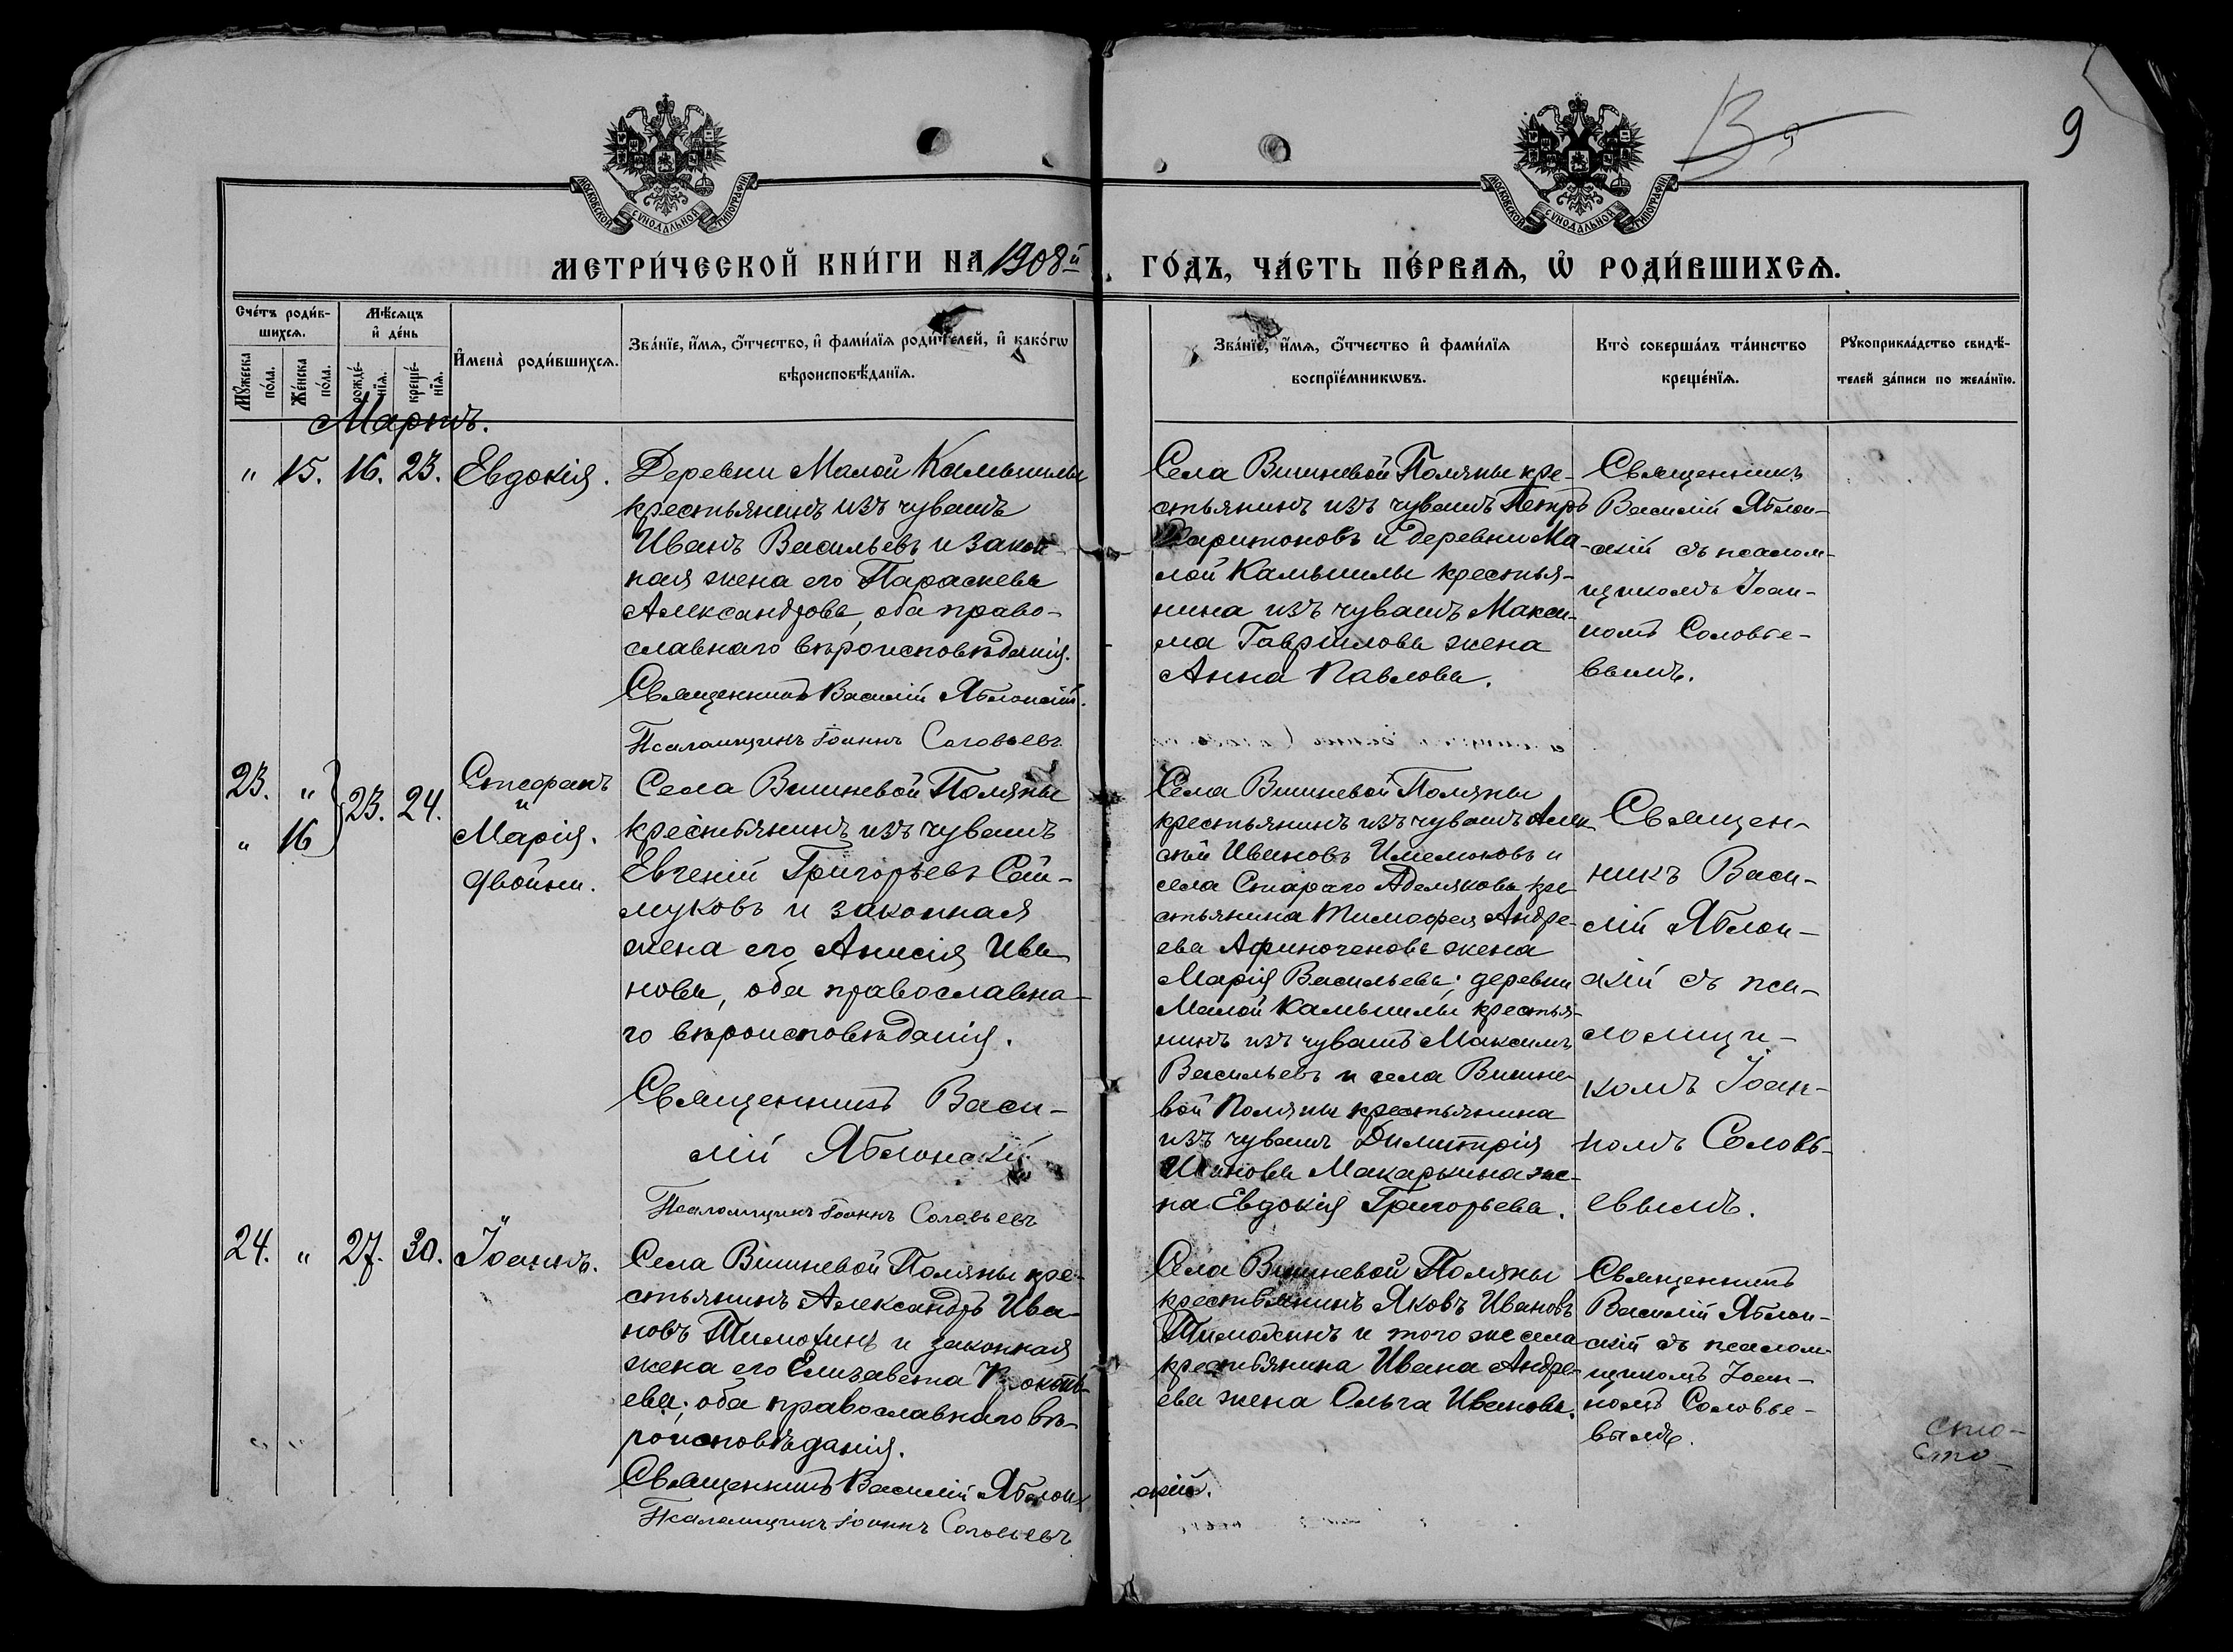 9
МОСКОВСКОЙ СУНОДАЛЬНОЙ ТИПОГРАФІИ
МОСКОВСКОЙ СУНОДАЛЬНОЙ ТИПОГРАФІИ
МЕТРИ́ЧЕСКОЙ КНИ́ГИ НА 1908й ГО́ДЪ, ЧА́СТЬ ПЕ́РВАѦ, Ѡ҆ РОДИ́ВШИХСѦ.
Сче́тъ роди́в-
шихсѧ.
Мꙋ́жеска
по́ла.
Же́нска
по́ла.
Мѣ́сѧцъ
и҆ де́нь
рожде́-
нїѧ.
креще́-
нїѧ.
И҆мена̀ роди́вшихсѧ.
Зва́нїе, и҆́мѧ, ѻ҆́тчество, и҆ фами́лїѧ роди́телей, и҆ како́гѡ
вѣроисповѣ́данїѧ.
Зва́нїе, и҆́мѧ, ѻ҆́тчество и҆ фами́лїѧ
воспрїе́мникѡвъ.
Кто̀ соверша́лъ та́инство
креще́нїѧ.
Рꙋкоприкла́дство свидѣ́-
телей за́писи по жела́нїю.
Мартъ.
" 15. 16. 23. Евдокія.
Деревни Малой Камышлы
крестьянинъ изъ чувашъ
Иванъ Васильевъ и закон-
ная жена его Параскева
Александрова, оба право-
славнаго вѣроисповѣданія.
Священникъ Василій Яблонскій.
Псаломщикъ Іоаннъ Соловьевъ
Села Вишневой Поляны кре-
стьянинъ изъ чувашъ Петръ
Харитоновъ и деревни Ма-
лой Камышлы крестья-
нина изъ чувашъ Макси-
ма Гаврилова жена
Анна Павлова.
Священникъ
Василій Яблон-
скій съ псалом-
щикомъ Іоан-
номъ Соловье-
вымъ.
23. "
" 16
23. 24.
Стефанъ
и
Марія.
двойни.
Села Вишневой Поляны
крестьянинъ изъ чувашъ
Евгеній Григорьевъ Сай-
муковъ и законная
жена его Анисія Ива-
нова, оба православна-
го вѣроисповѣданія.
Священникъ Васи-
лій Яблонскій
Псаломщикъ Іоаннъ Соловьевъ
Села Вишневой Поляны
крестьянинъ изъ чувашъ Алек-
сѣй Ивановъ и
села Стараго Адемякова кре-
стьянина Тимофея Андре-
ева жена
Марія Васильева; деревни
Малой Камышлы крестья-
нинъ изъ чувашъ Максимъ
Васильевъ и села Вишне-
вой Поляны крестьянина
изъ чувашъ Димитрія
Иванова Макарькина же-
на Евдокія Григорьева.
Священ-
никъ Васи-
лій Яблон-
скій съ пса-
ломщи-
комъ Іоан-
номъ Соловь-
евымъ.
24. " 27. 30. Іоаннъ.
Села Вишневой Поляны кре-
стьянинъ Александръ Ива-
новъ Тимохинъ и законная
жена его Елизавета Прокопь-
ева; оба православнаго вѣ-
роисповѣданія.
Священникъ Василій Яблон-
скій.
Псаломщикъ Іоаннъ Соловьевъ
Села Вишневой Поляны
крестьянинъ Яковъ Ивановъ
Тимохинъ и того же села
крестьянина Ивана Андре-
ева жена Ольга Иванова.
Священникъ
Василій Яблон-
скій съ псалом-
щикомъ Іоан-
номъ Соловье-
вымъ.
сто-
сто-